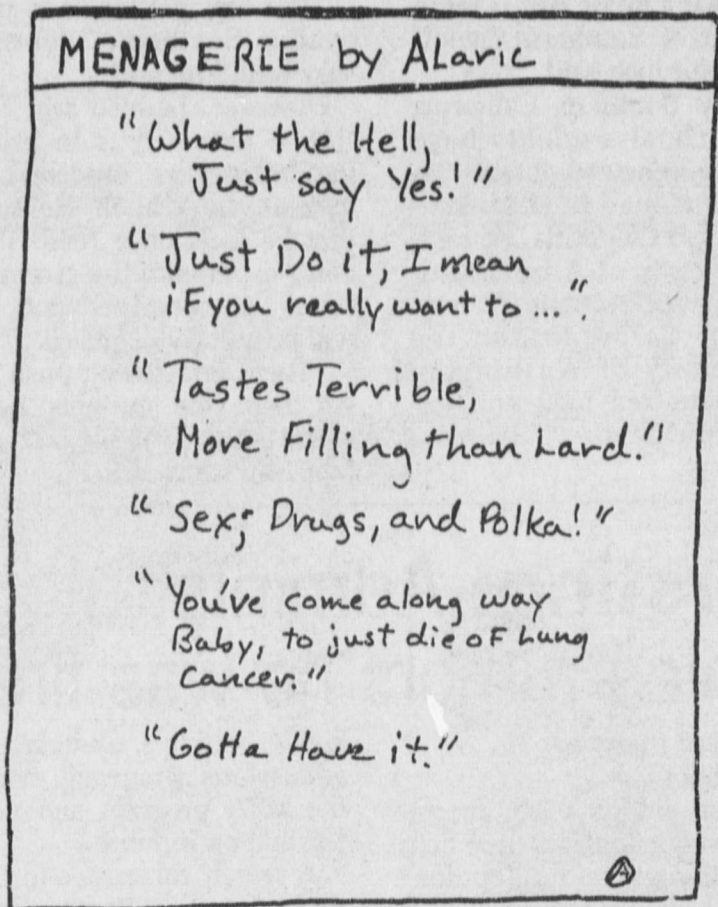 MENAGERIE by ALaric
"What the Hell,
Just say Yes!"
"Just Do it, I mean
if you really want to ...".
"Tastes Terrible,
More Filling than Lard."
"Sex; Drugs, and Polka!"
"You've come along way
Baby, to just die of Lung
Cancer."
"Gotta Have it."
A